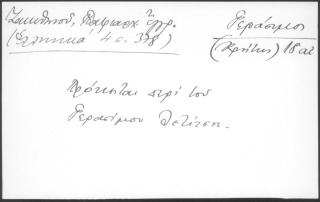 Ζακυθηνού, Πατριαρχ. έγγρ.
(Ἑλληνικά 4 σ. 378)
Γεράσιμος
(Κρήτης) 18 αἰ
Πρόκειται περί του
Γερασίμου Λετίτζη.